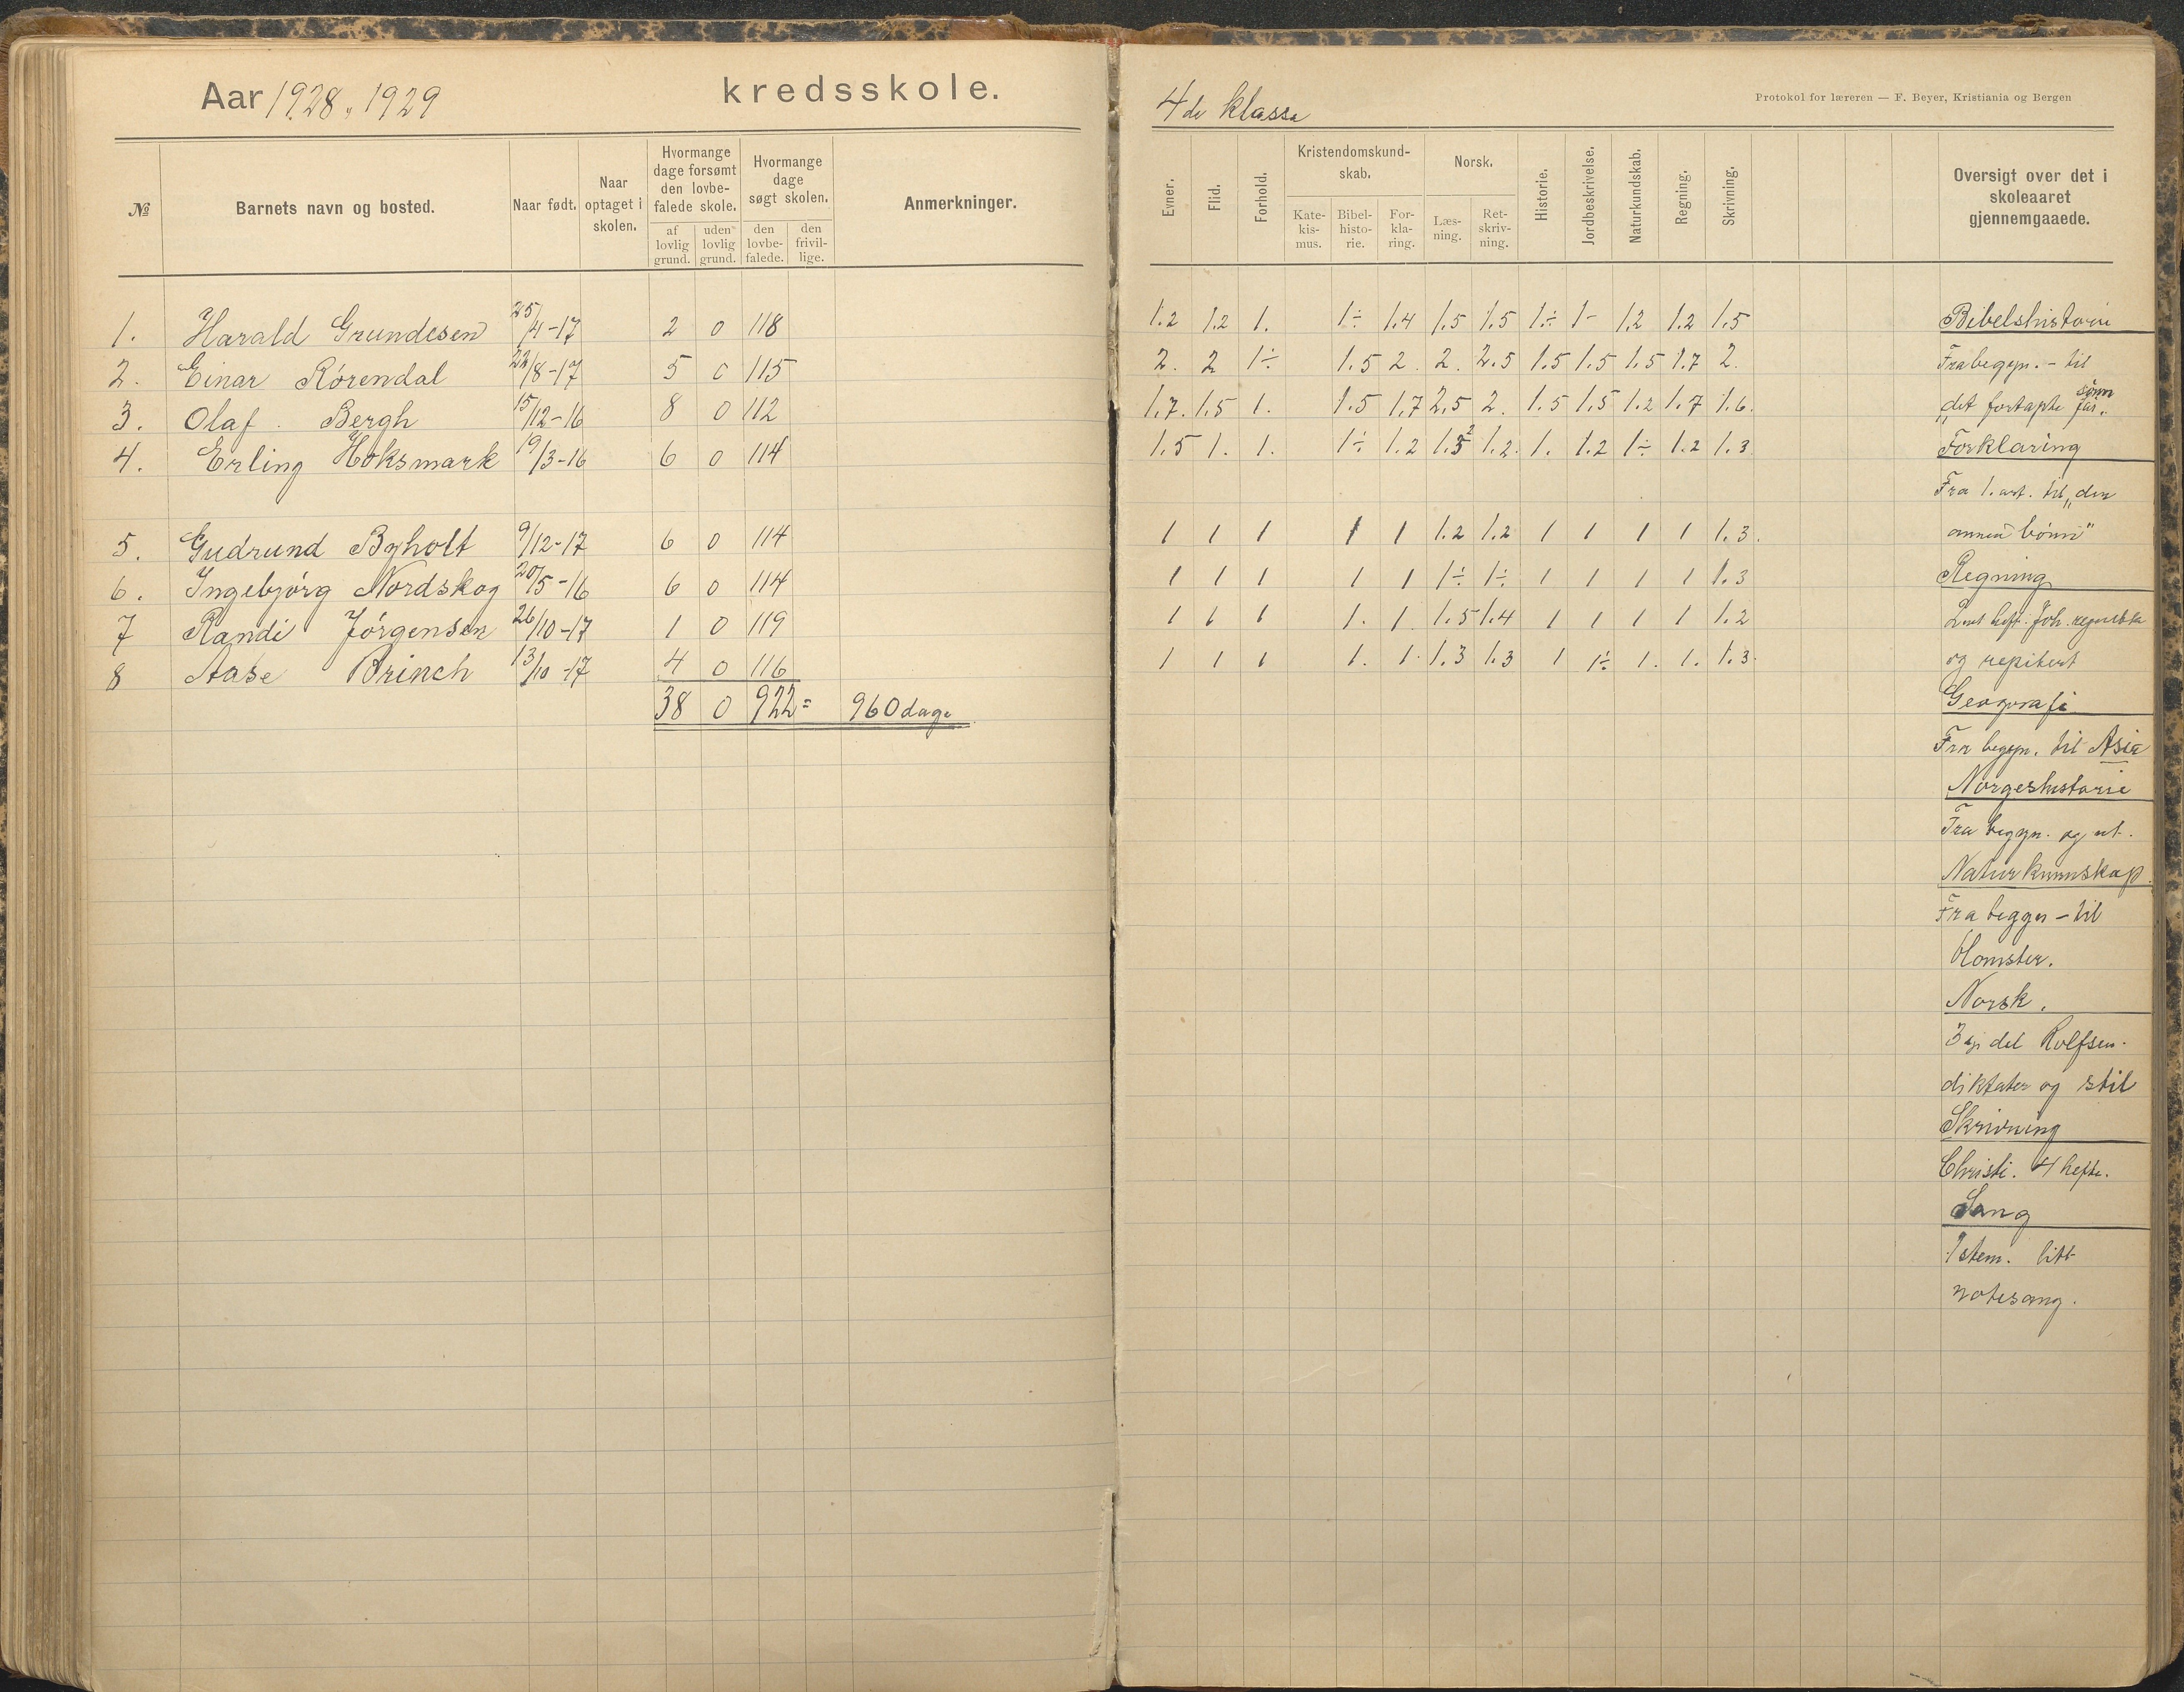 Aar 1928-1929 kredsskole.
№ Barnets navn og bosted. Naar født. Naar optaget i skolen. Hvormange dage forsømt den lovbefalede skole. af lovlig grund. uden lovlig grund. Hvormange dage søgt skolen. den lovbefalede. den frivillige. Anmerkninger.
1. Harald Grundesen 25/4-17 2 0 118
2. Einar Rørendal 22/8-17 5 0 115
3. Olaf Bergh 15/12-16 8 0 112
4. Erling Hoksmark 19/3-16 6 0 114
5. Gudrund Byholt 9/12-17 6 0 114
6. Ingebjørg Nordskog 20/5-16 6 0 114
7 Randi Jørgensen 26/10-17 1 0 119
8 Aase Brinch 13/10-17 4 0 116
38 0 922 = 960 dage
4de klasse
Protokol for læreren — F. Beyer, Kristiania og Bergen
Evner. Flid. Forhold. Kristendomskundskab. Katekismus. Bibelhistorie. Forklaring. Norsk. Læsning. Retskrivning. Historie. Jordbeskrivelse. Naturkundskab. Regning. Skrivning. Oversigt over det i skoleaaret gjennemgaaede.
1.2 1.2 1. 1÷ 1.4 1.5 1.5 1.÷ 1- 1.2 1.2 1.5 Bibelshistorie
2. 2 1÷ 1.5 2. 2. 2.5 1.5 1.5 1.5 1.7 2. Fra begyn. - til
1.7. 1.5 1. 1.5 1.7 2.5 2. 1.5 1.5 1.2 1.7 1.6. „det fortapte sønn
1.5 1. 1. 1÷ 1.2 1.3 1.2. 1. 1.2 1÷ 1.2 1.3. Forklaring
Fra 1. art. til „den
1 1 1 1 1 1.2 1.2 1 1 1 1 1.3. annen bønn"
1 1 1 1 1 1÷ 1÷ 1 1 1 1 1.3 Regning
1 1 1 1. 1. 1.5 1.4 1 1 1 1 1.2
1 1 1 1. 1. 1.3 1.3 1 1÷ 1. 1. 1.3. og repitert
Geografi
Fra begyn. til Asia
Norgeshistorie
Fra begyn. og ut.
Naturkunnskap.
Fra begyn - til
blomster.
Norsk.
3dje del Rolfsen.
diktater og stil
Skrivning
Christi. 4 hefte.
Sang
1 stem. litt
notesang.